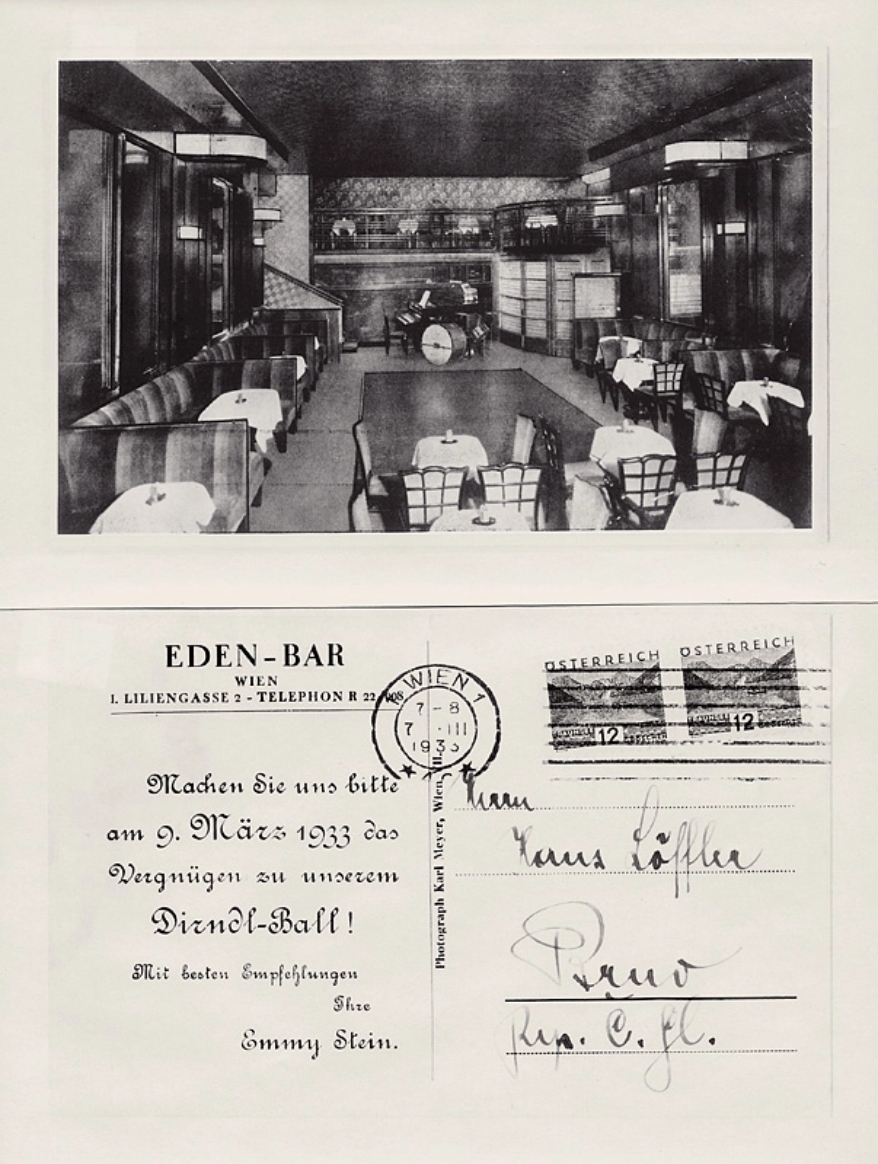 EDEN-BAR
WIEN
I. LILIENGASSE 2 - TELEPHON R 22 908
Machen Sie uns bitte
am 9. März 1933 das
Vergnügen zu unserem
Dirndl-Ball!
Mit besten Empfehlungen
Ihre
Emmy Stein.
Photograph Karl Meyer, Wien, VII.
WIEN 1
7-8
7 III
1933
ÖSTERREICH
12
ÖSTERREICH
12
Herrn
Hans Löffler
Brno
Rep. Č. Sl.